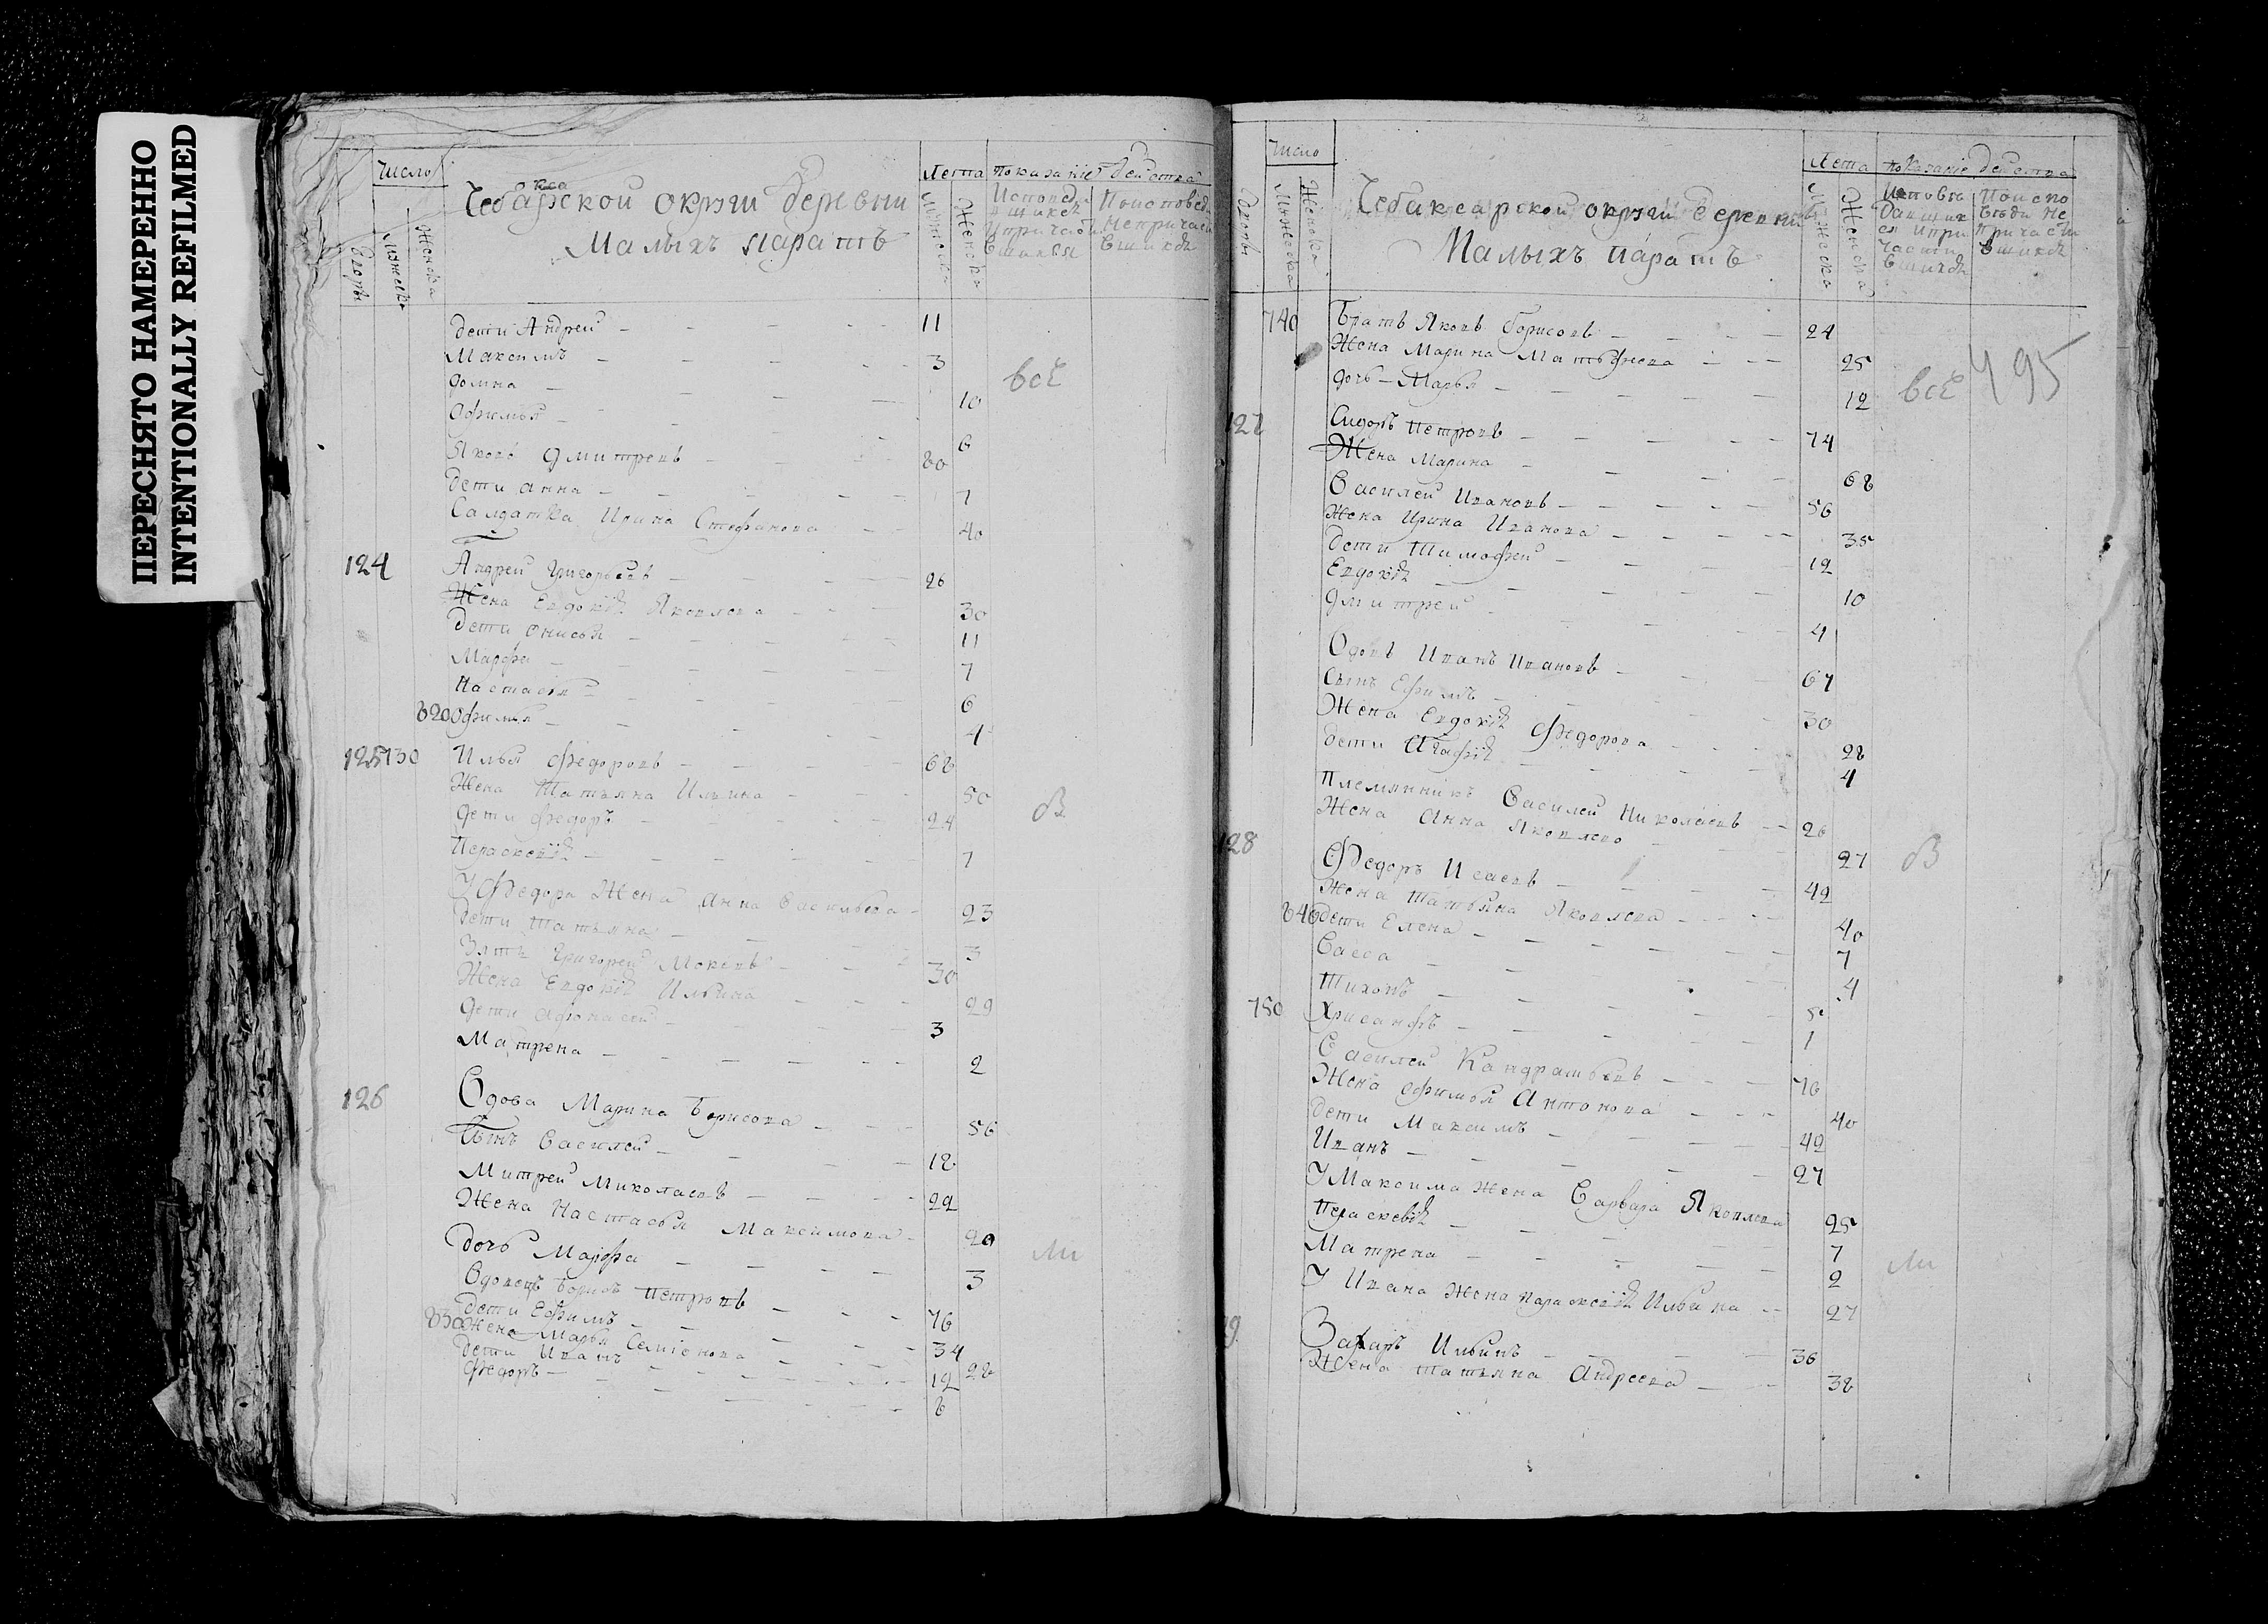 ПЕРЕСНЯТО НАМЕРЕННО
INTENTIONALLY REFILMED
число
Дворы
Мужеска
Женска
Чебаксарской округи деревни
Малыхъ Паратъ
Лета
Мужеска
Женска
показаніе действа
дети Андрей 11
Максимъ 3
Домна 10
Афимья 6
всѣ
Яковъ Дмитревъ 80
дети Анна 7
Салдатка Ирина Стефанова 40
124 Андрей Григорьевъ 26
Жена Евдокія Яковлева 30
дети Онисья 11
Марфа 7
Настасья 6
820 Офимья 4
125 730 Илья Федоровъ 68
Жена Татьяна Ильина 50
дети Федоръ 24
Перасковія 7
У Федора Жена Анна Васильева 23
дети Татьяна 3
Зять Григорей Мокеевъ 30
Жена Евдокія Ильина 29
дети Афонасей 3
Матрена 2
126 Вдова Марина Борисова 56
Сынъ Василей 18
Митрей Миколаевъ 22
Жена Настасья Максимова 20
дочь Марфа 3
Вдовецъ Борисъ Петровъ 76
дети Ефимъ 34
830 Жена Марья Семіонова 28
дети Иванъ 12
Федоръ 8
ли
число
Дворы
Мужеска
Женска
Чебаксарской округи деревни
Малыхъ Паратъ
Лета
Мужеска
Женска
показаніе действа
740 Братъ Яковъ Борисовъ 24
Жена Марина Матвѣева 25
дочь Марья 12
всѣ
495
127 Сидоръ Петровъ 74
Жена Марина 68
Василей Ивановъ 56
Жена Ирина Иванова 35
дети Тимофей 12
Евдокія 10
Дмитрей 4
Вдовъ Иванъ Ивановъ 67
Сынъ Ефимъ 30
Жена Евдокія Федорова 28
дети Агафія 4
Племянникъ Василей Николаевъ 26
Жена Анна Яковлева 27
128 Федоръ Исаевъ 42
Жена Татьяна Яковлева 40
840 дети Елена 7
Васса 4
Тихонъ 5
750 Хрисанфъ 1
Василей Кандратьевъ 76
Жена Офимья Антонова 40
дети Максимъ 42
Иванъ 27
У Максима Жена Варвара Яковлева 25
Перасковія 7
Матрена 2
У Ивана Жена Парасковія Ильина 27
ли
9 Захаръ Ильинъ 36
Жена Татьяна Андреева 38